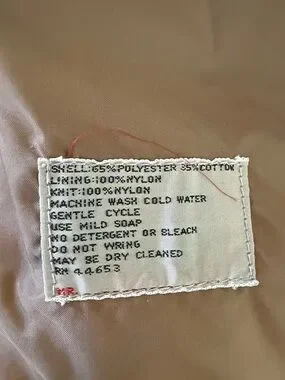 SHELL:65%POLYESTER 35%COTTON
LINING:100%NYLON
KNIT:100%NYLON
MACHINE WASH COLD WATER
GENTLE CYCLE
USE MILD SOAP
NO DETERGENT OR BLEACH
DO NOT WRING
MAY BE DRY CLEANED
RN 44653
MR.